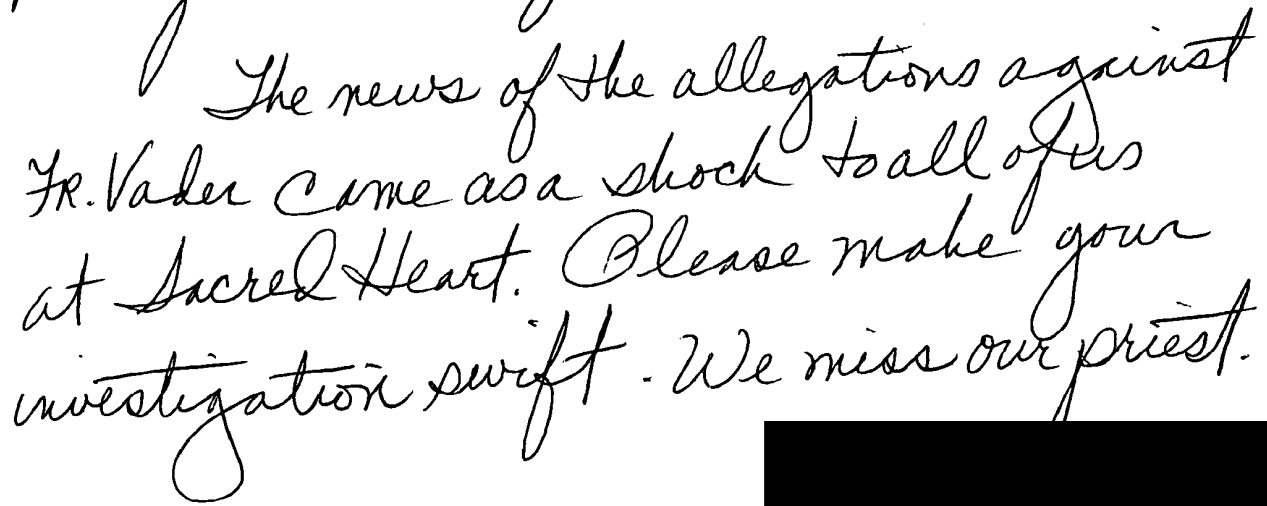 The news of the allegations against
FR. Vader came as a shock to all of us
at Sacred Heart. Please make your
investigation swift. We miss our priest.